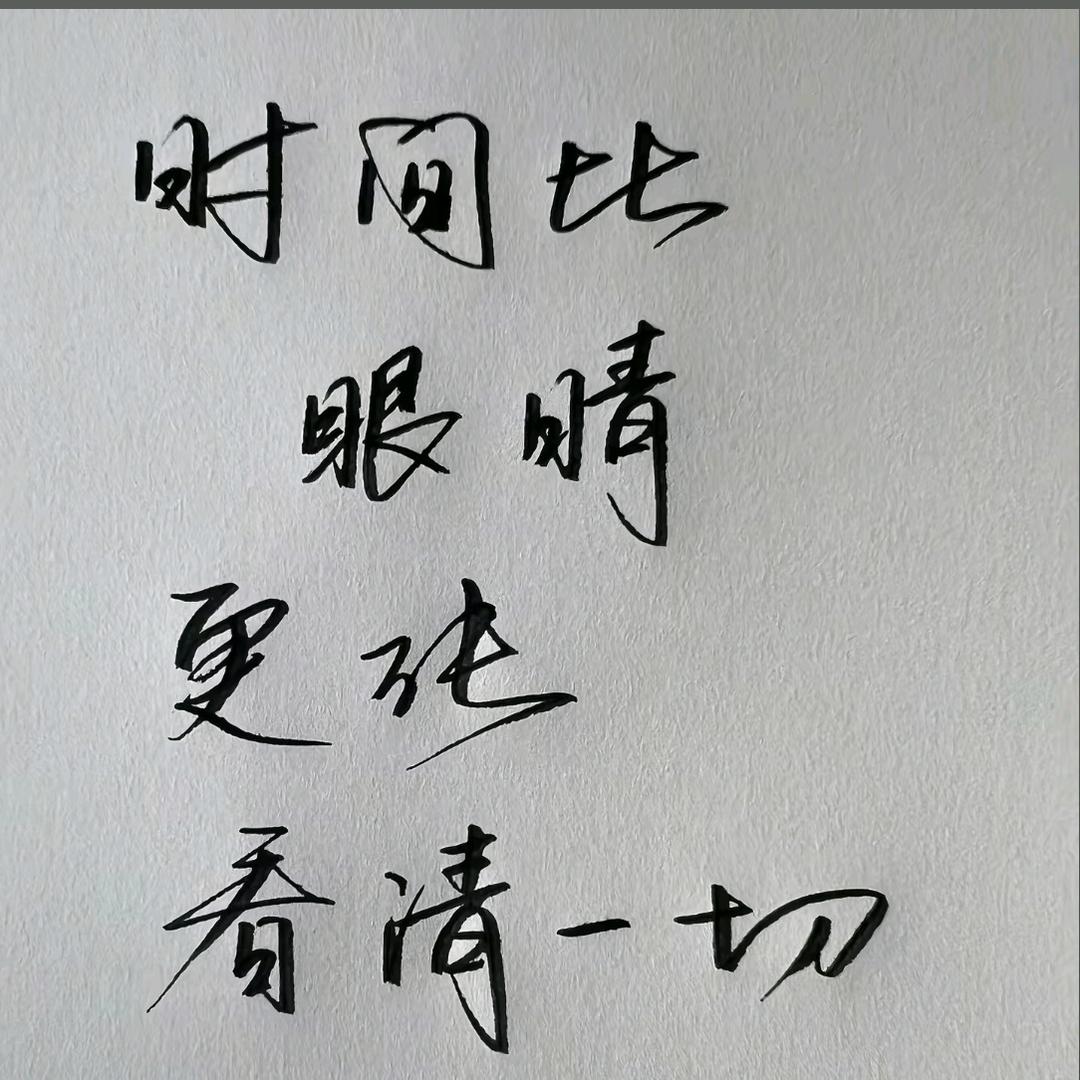 时间比
眼睛
更能
看清一切